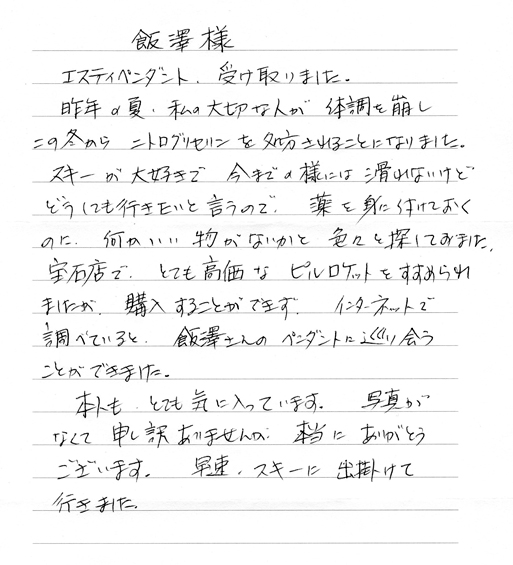 飯澤様
エスティペンダント、受け取りました。
昨年の夏、私の大切な人が 体調を崩し
この冬から ニトログリセリンを処方されることになりました。
スキーが大好きで 今までの様には滑れないけど
どうしても行きたいと言うので、薬を身に付けておく
のに、何かいい物がないかと色々と探してみました。
宝石店で、とても高価なピルロケットをすすめられ
ましたが、購入することができず、インターネットで
調べていると、飯澤さんのペンダントに巡り会う
ことができました。
本人も、とても気に入っています。写真が
なくて申し訳ありませんが、本当にありがとう
ございます。早速、スキーに出掛けて
行きました。